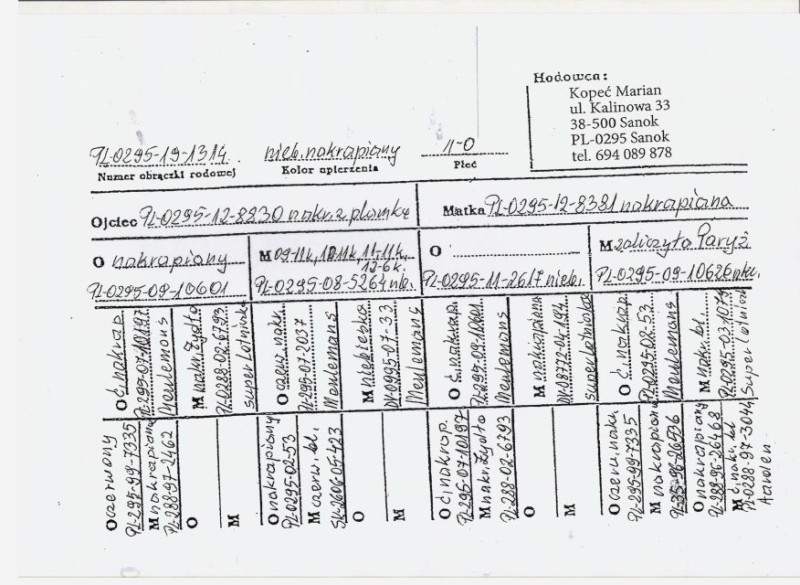 Hodowca:
Kopeć Marian
ul. Kalinowa 33
38-500 Sanok
PL-0295 Sanok
tel. 694 089 878
PL-0295-19-1314 nieb. nakrapiany 1-0
Numer obrączki rodowej Kolor upierzenia Płeć
Ojciec PL-0295-12-8230 nakr. z plamką Matka PL-0295-12-8381 nakrapiana
O nakrapiany
PL-0295-09-10601
M 09-11k, 10-11k, 11-11k,
12-6k.
PL-0295-08-5264 nb.
O
PL-0295-11-2617 nieb.
M zaliczyła Paryż
PL-0295-09-10626 nkr.
O c. nakrap.
PL-295-07-10197
Meulemans
M nakr. Żydło
PL-0288-02-6793
superlotniska
O czerw. nakr.
PL-295-07-2037
Meulemans
M niebieska
DV-0995-07-33
Meulemans
O c. nakrap.
PL-295-09-10601
Meulemans
M nakrapiana
DV-08722-04-194
superlotniska
O c. nakrap.
PL-0295-02-53
Meulemans
M nakr. bl.
PL-0295-03-1079
Superlotnisk
O czerwony
PL-295-99-7335
M nakrapiana
PL-288-97-2462
O
M
O nakrapiany
PL-0295-02-53
M czerw. bl.
SK-2606-05-423
O
M
O c. nakrap.
PL-295-07-10197
M nakr. Żydło
PL-288-02-6793
O
M
O czerw. nakr.
PL-295-99-7335
M nakrapiana
O nakrapiany
PL-288-96-26468
M c. nakr. bl
PL-0288-97-3044
Aarden